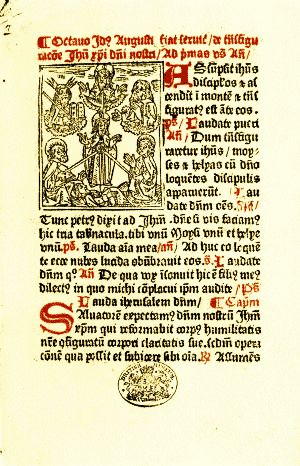 ¶ Octavo Idꝰ Augusti fiat seruiᷓ de trãsfigu
racõe Jhũ xp̃i dñi nostri / Ad p̃mas vs̃ Añ /
Assũpsit ihũs
discip̃los ⁊ as
cendit ĩ montẽ ⁊ trãs
figuratꝰ est ãte eos.
ps̃ Laudate pueri
Añ / Dum trãsfigu
raretur ihũs / moy-
ses ⁊ helyas cũ dño
loquẽtes discipulis
apparuerũt. Lau
date dñm oẽs. Añ /
Tunc petrꝰ dixit ad Jhm̃. dñe si vis faciamꝰ
hic tria tabnacula. tibi vnũ Moysi vnũ et helye
vnũ. ps̃. Lauda aĩa mea / añ / Ad huc eo loquẽ
te ecce nubes lucida obũbrauit eos. ps̃. Laudate
dñm qꝰ Añ De qua vox ĩsonuit hic ẽ filiꝰ meꝰ
dilectꝰ in quo michi cõplacui ip̃m audite / Ps̃
Lauda iherusalem dñm / ¶ Capm̃
Saluatorẽ expectamꝰ dñm nostrũ Jhm̃
xp̃m qui reformabit corpꝰ humilitatis
nr̃e ↄfiguratũ corpori claritatis sue. scdm̃ opera
cõnẽ qua possit et subicere sibi oĩa. R̷ Assumẽs